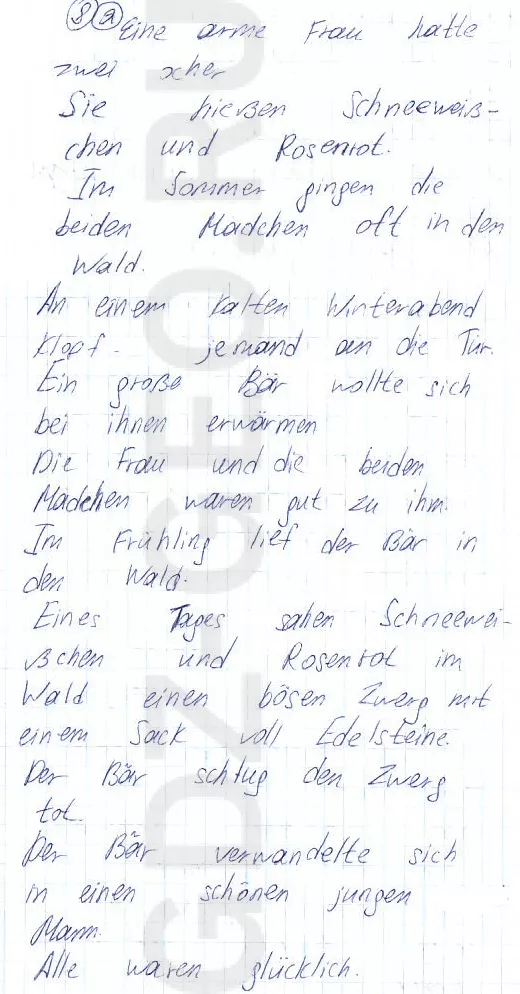 8 a Eine arme Frau hatte
zwei xcher
Sie hießen Schneeweiß-
chen und Rosenrot.
Im Sommer gingen die
beiden Madchen oft in den
Wald.
An einem kalten Winterabend
klopf jemand an die Tür.
Ein große Bär wollte sich
bei ihnen erwärmen
Die Frau und die beiden
Madchen waren gut zu ihm.
Im Frühling lief der Bär in
den Wald.
Eines Tages sahen Schneewei-
ßchen und Rosenrot im
Wald einen bösen Zwerg mit
einem Sack voll Edelsteine.
Der Bär schlug den Zwerg
tot.
Der Bär verwandelte sich
in einen schönen jungen
Mann.
Alle waren glücklich.
GDZ-GEO.RU